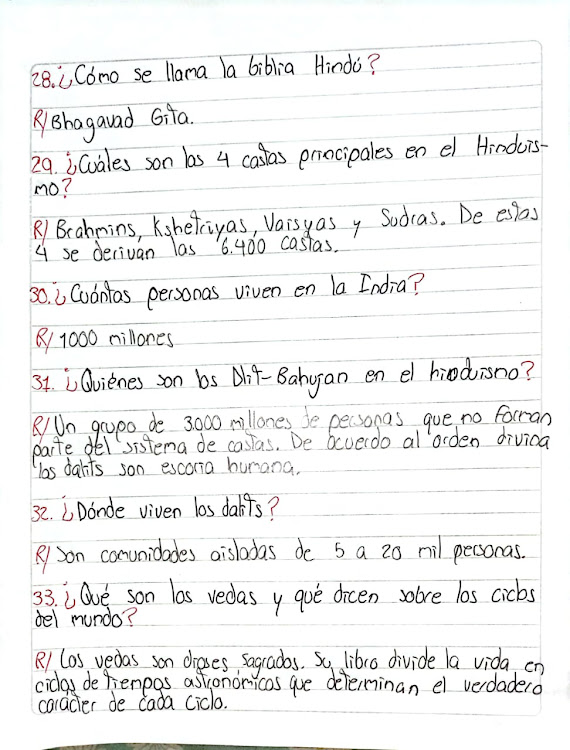 28. ¿Cómo se llama la biblia Hindú?
R/ Bhagavad Gita.
29. ¿Cuáles son las 4 castas principales en el Hinduis-
mo?
R/ Brahmins, Kshetriyas, Vaisyas y Sudras. De estas
4 se derivan las 6.400 castas.
30. ¿Cuántas personas viven en la India?
R/ 1000 millones
31. ¿Quiénes son los Dlit-Bahujan en el hinduismo?
R/ Un grupo de 3000 millones de personas que no forman
parte del sistema de castas. De acuerdo al orden divina
los dalits son escoria humana.
32. ¿Dónde viven los dalits?
R/ Son comunidades aisladas de 5 a 20 mil personas.
33. ¿Qué son las vedas y qué dicen sobre los ciclos
del mundo?
R/ Los vedas son dioses sagrados. Su libro divide la vida en
ciclos de tiempos astronómicos que determinan el verdadero
carácter de cada ciclo.